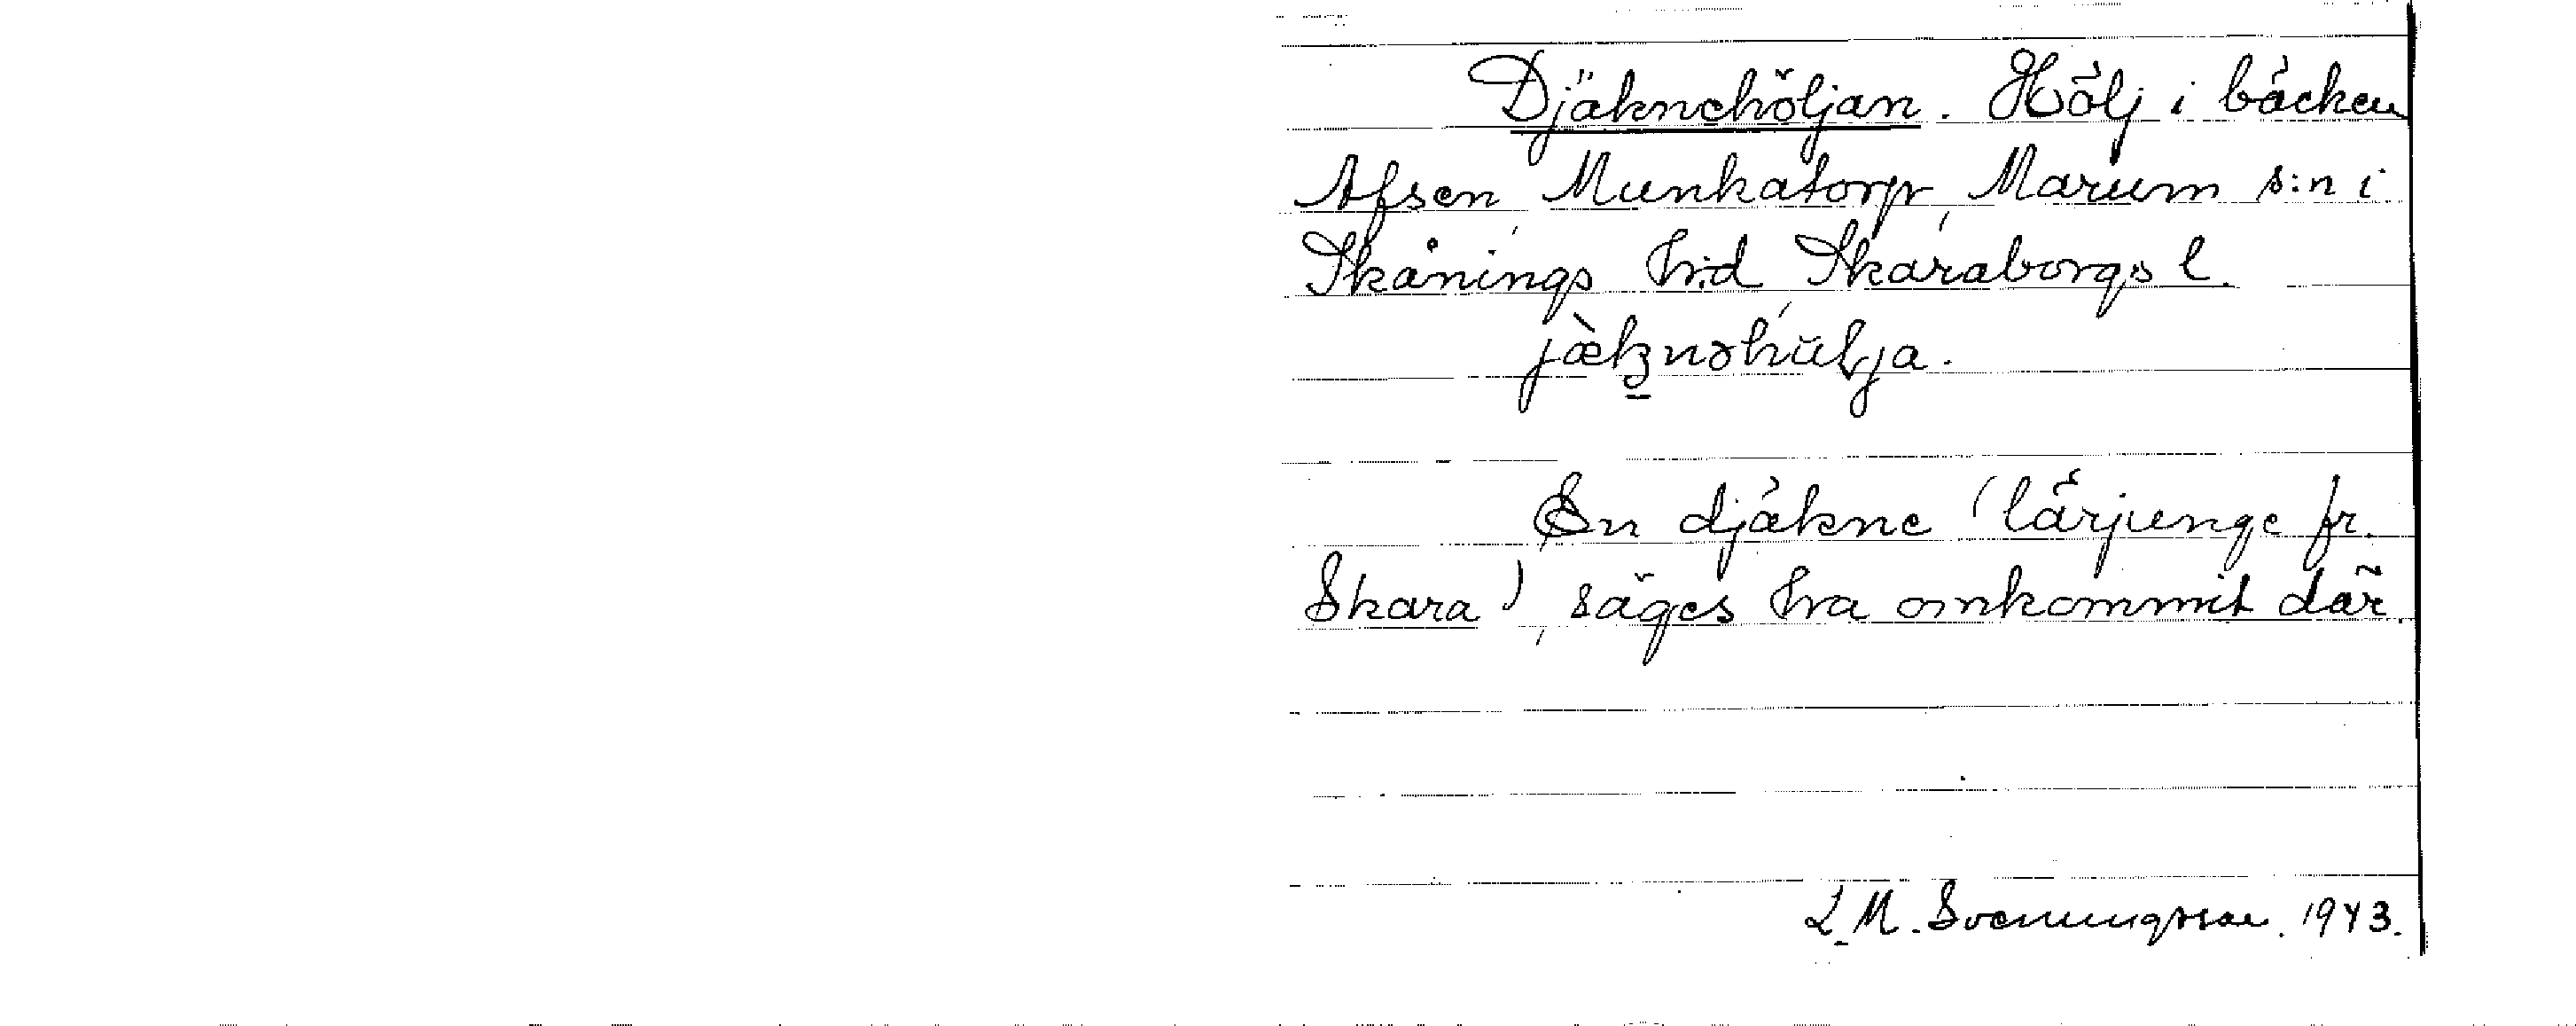 Djäknehöljan. Hölj i bäcken
Afsen, Munkatorp, Marum s:n i
Skånings h:d, Skaraborgs l.
jæ̀knəhulja.
En djäkne (lärjunge fr.
Skara), säges ha omkommit där.
L. M. Svenungsson. 1943.